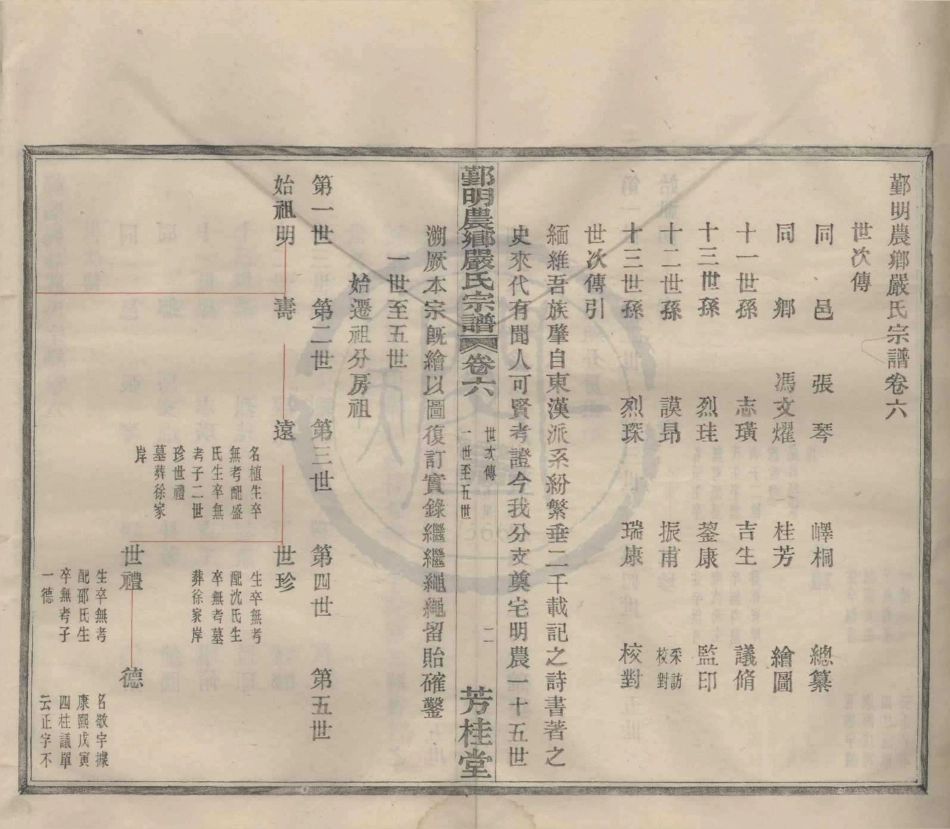 鄞明農鄉嚴氏宗譜卷六
世次傳
同邑 張琴 嶧桐 總纂
同鄉 馮文燿 桂芳 繪圖
十一世孫 志璜 吉生 議脩
十三世孫 烈珪 鋆康 監印
十二世孫 謨昂 振甫 采訪校對
十三世孫 烈琛 瑞康 校對
世次傳引
緬維吾族肇自東漢派系紛繁垂二千載記之詩書著之
史來代有聞人可賢考證今我分支奠宅明農一十五世
溯厥本宗既繪以圖復訂實錄繼繼繩繩留貽確鑿
一世至五世
始遷祖分房祖
第一世 第二世 第三世 第四世 第五世
始祖明 壽 遠 世珍
名植生卒
無考配盛
氏生卒無
考子二世
珍世禮
墓葬徐家
岸
生卒無考
配沈氏生
卒無考墓
葬徐家岸
世禮 德
生卒無考
配邵氏生
卒無考子
一德
名敬字據
康熙戊寅
四柱議單
云正字不
鄞明農鄉嚴氏宗譜 卷六 世次傳 一世至五世 二 芳桂堂